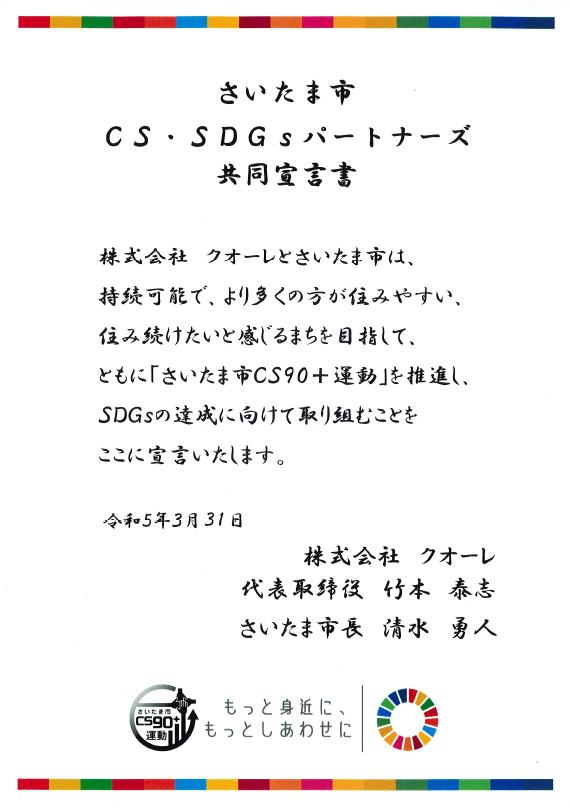 さいたま市
CS・SDGsパートナーズ
共同宣言書
株式会社 クオーレとさいたま市は、
持続可能で、より多くの方が住みやすい、
住み続けたいと感じるまちを目指して、
ともに「さいたま市CS90＋運動」を推進し、
SDGsの達成に向けて取り組むことを
ここに宣言いたします。
令和5年3月31日
株式会社 クオーレ
代表取締役 竹本 泰志
さいたま市長 清水 勇人
さいたま市
CS90+
運動
もっと身近に、
もっとしあわせに